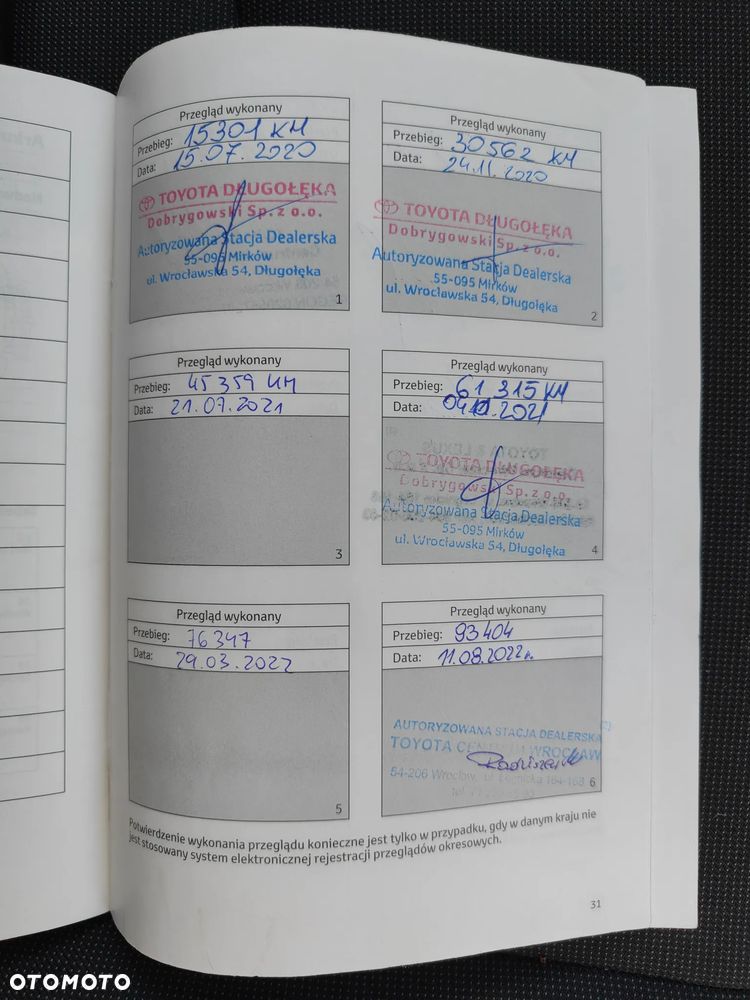 Przegląd wykonany
Przebieg: 15301 KM
Data: 15.07.2020
TOYOTA DŁUGOŁĘKA
Dobrygowski Sp. z o.o.
Autoryzowana Stacja Dealerska
55-095 Mirków
ul. Wrocławska 54, Długołęka
1
Przegląd wykonany
Przebieg: 30562 KM
Data: 24.11.2020
TOYOTA DŁUGOŁĘKA
Dobrygowski Sp. z o.o.
Autoryzowana Stacja Dealerska
55-095 Mirków
ul. Wrocławska 54, Długołęka
2
Przegląd wykonany
Przebieg: 45359 KM
Data: 21.07.2021
3
Przegląd wykonany
Przebieg: 61 315 KM
Data:
TOYOTA DŁUGOŁĘKA
Dobrygowski Sp. z o.o.
Autoryzowana Stacja Dealerska
55-095 Mirków
ul. Wrocławska 54, Długołęka
4
Przegląd wykonany
Przebieg: 76347
Data: 29.03.2022
5
Przegląd wykonany
Przebieg: 93 404
Data: 11.08.2022r.
AUTORYZOWANA STACJA DEALERSKA
TOYOTA CENTRUM WROCŁAW
54-206 Wrocław, ul. Legnicka 164-168
6
Potwierdzenie wykonania przeglądu konieczne jest tylko w przypadku, gdy w danym kraju nie
jest stosowany system elektronicznej rejestracji przeglądów okresowych.
31
OTOMOTO